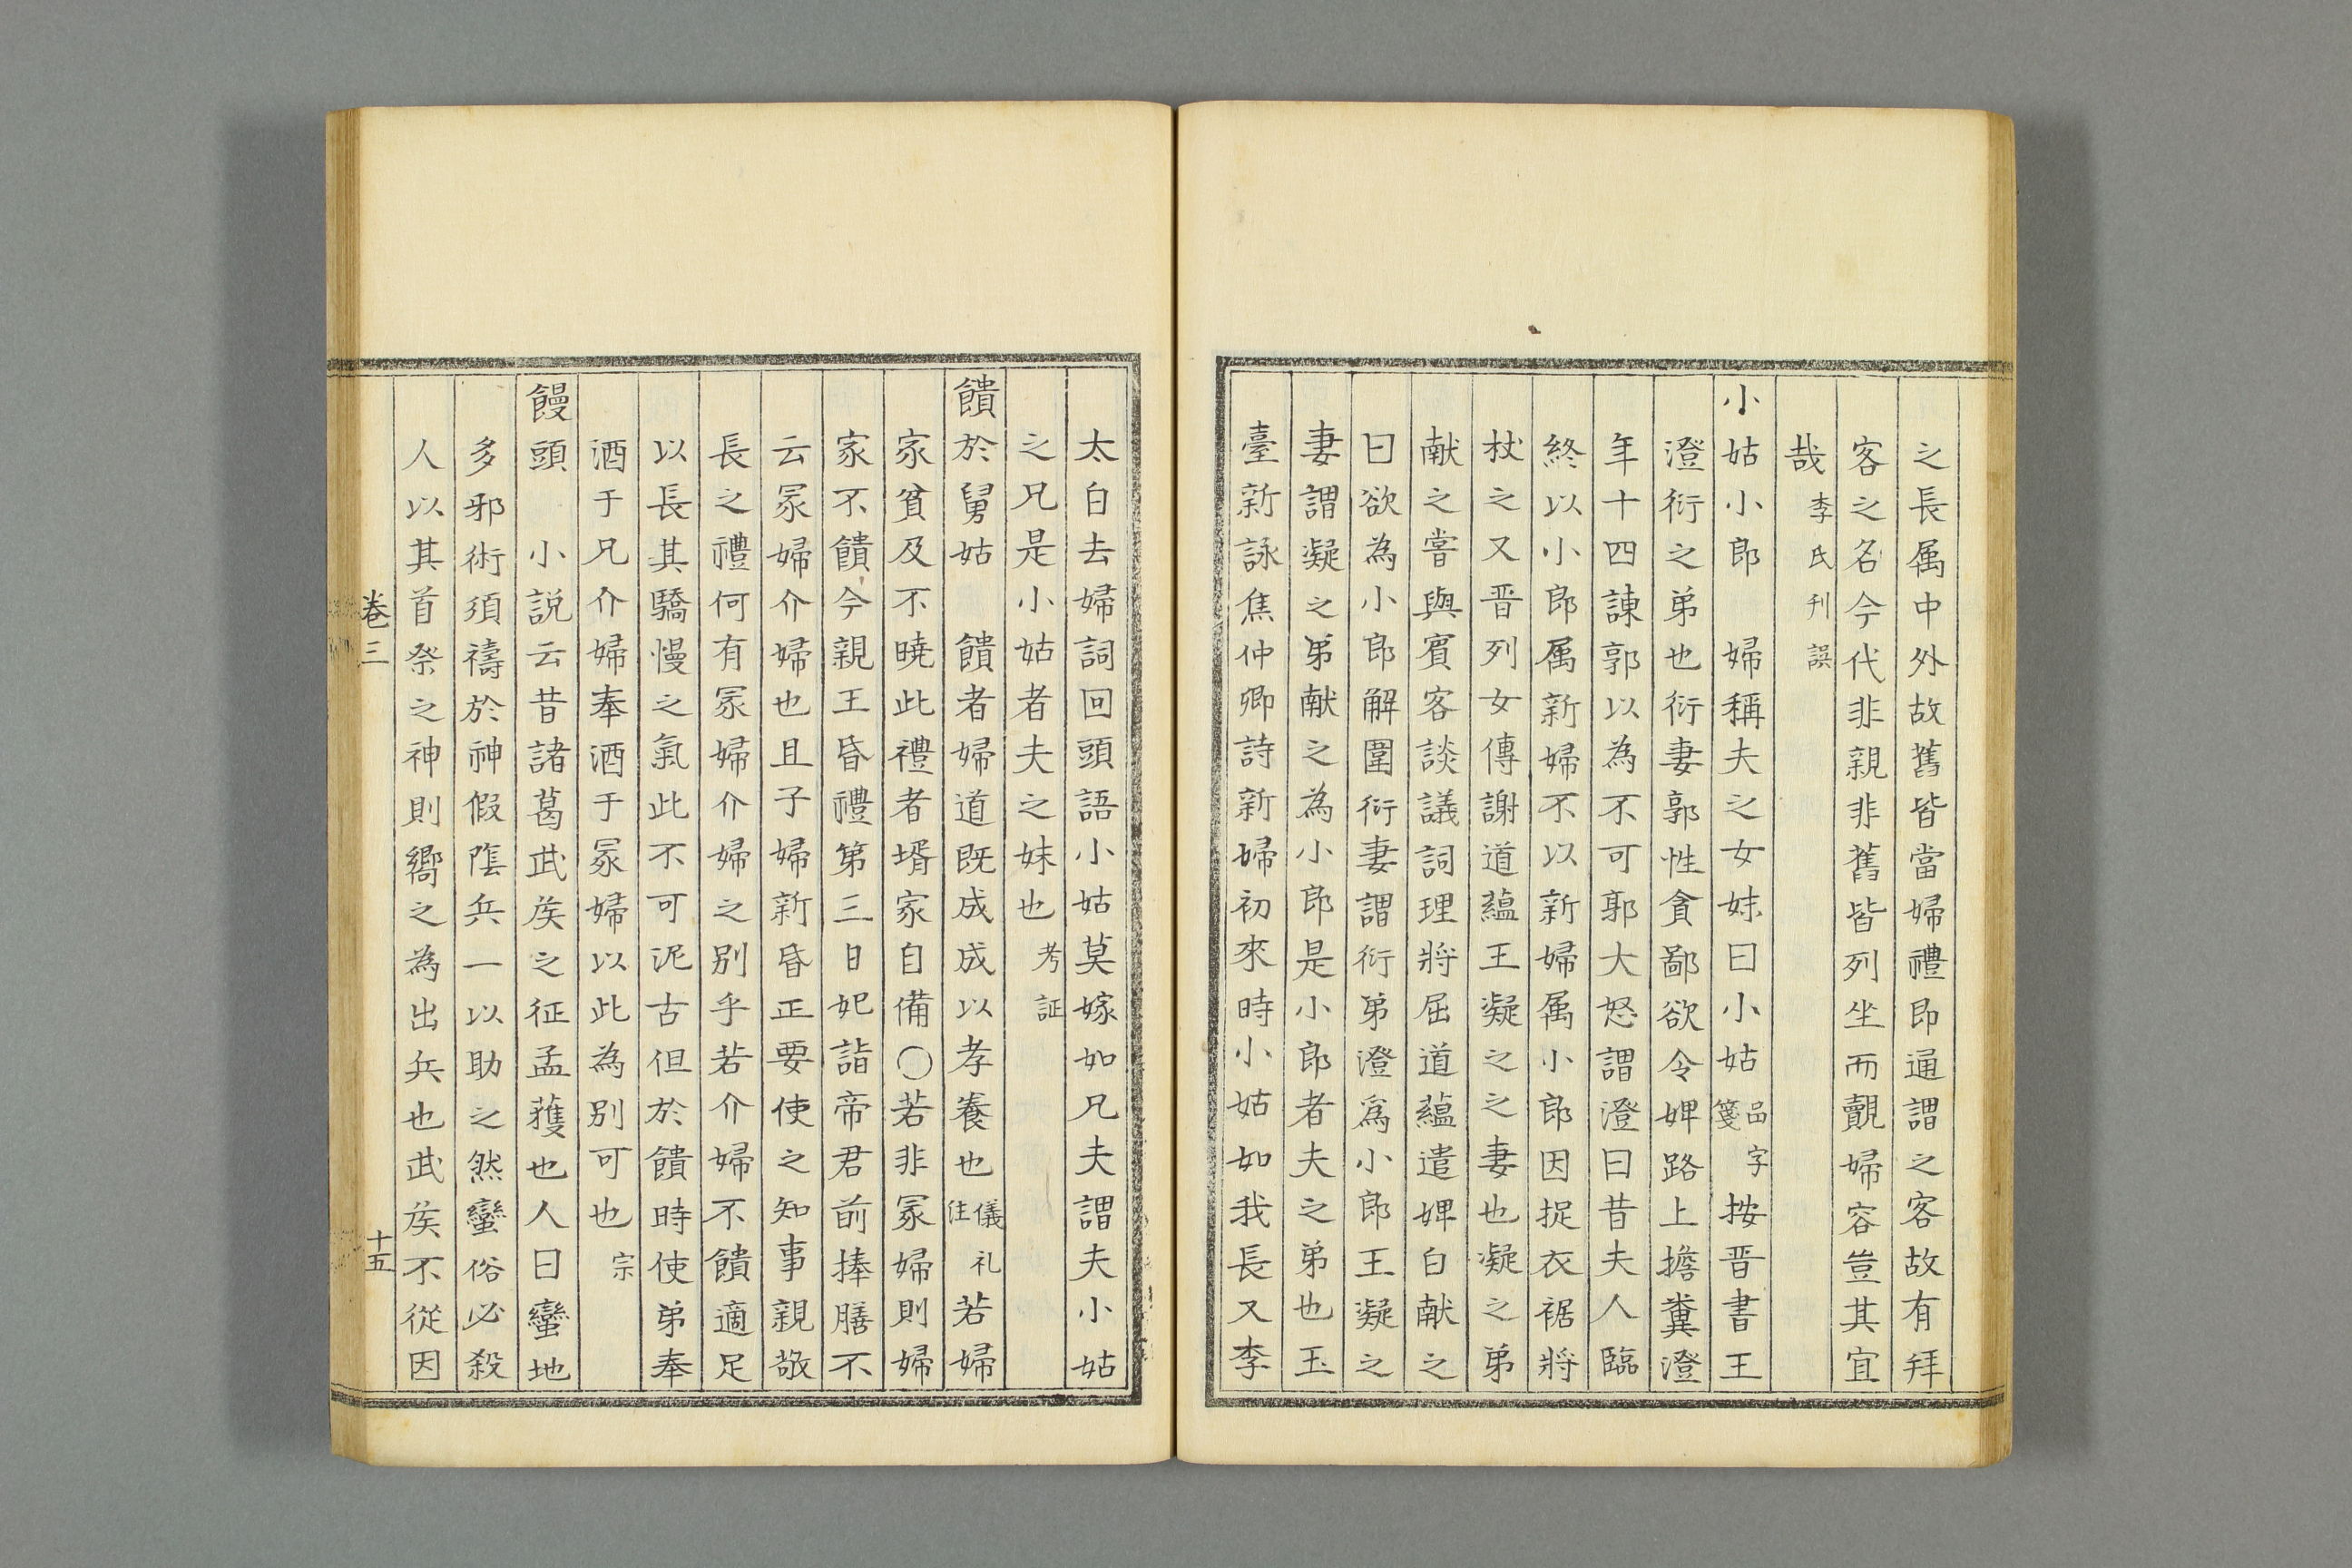 之長属中外故舊皆當婦禮即通謂之客故有拜
客之名今代非親非舊皆列坐而覿婦容豈其宜
哉李氏刊誤
小姑小郎　婦稱夫之女妹曰小姑品字箋按晋書王
澄衍之弟也衍妻郭性貪鄙欲令婢路上擔糞澄
年十四諌郭以為不可郭大怒謂澄曰昔夫人臨
終以小郎属新婦不以新婦属小郎因捉衣裾將
杖之又晋列女傳謝道蘊王凝之之妻也凝之弟
献之嘗與賓客談議詞理將屈道蘊遣婢白献之
曰欲為小郎解圍衍妻謂衍弟澄為小郎王凝之
妻謂凝之弟献之為小郎是小郎者夫之弟也玉
臺新詠焦仲卿詩新婦初來時小姑如我長又李
太白去婦詞回頭語小姑莫嫁如兄夫謂夫小姑
之兄是小姑者夫之妹也考証
饋於舅姑　饋者婦道既成成以孝養也儀礼注若婦
家貧及不曉此禮者壻家自備○若非冢婦則婦
家不饋今親王昏禮第三日妃詣帝君前捧膳不
云冢婦介婦也且子婦新昏正要使之知事親敬
長之禮何有冢婦介婦之別乎若介婦不饋適足
以長其驕慢之氣此不可泥古但於饋時使弟奉
酒于兄介婦奉酒于冢婦以此為別可也宗
饅頭　小説云昔諸葛武侯之征孟獲也人曰蠻地
多邪術須禱於神假隂兵一以助之然蠻俗必殺
人以其首祭之神則嚮之為出兵也武侯不從因
卷三
十五